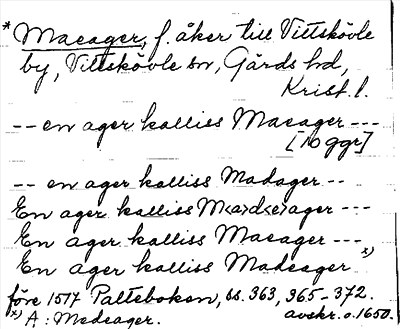 * Maeager, f. åker till Vittskövle
by, Vittskövle sn, Gärds hd,
Krist. l.
-- en ager kalliss Maeager ---
[10 ggr]
-- en ager kalliss Madager --
En ager kalliss M<a>d<e>ager ---
En ager kalliss Maeager ---
En ager kalliss Madeager x)
före 1517 Palteboken, ss. 363, 365-372.
x) A: Medeager. avskr. o. 1650.